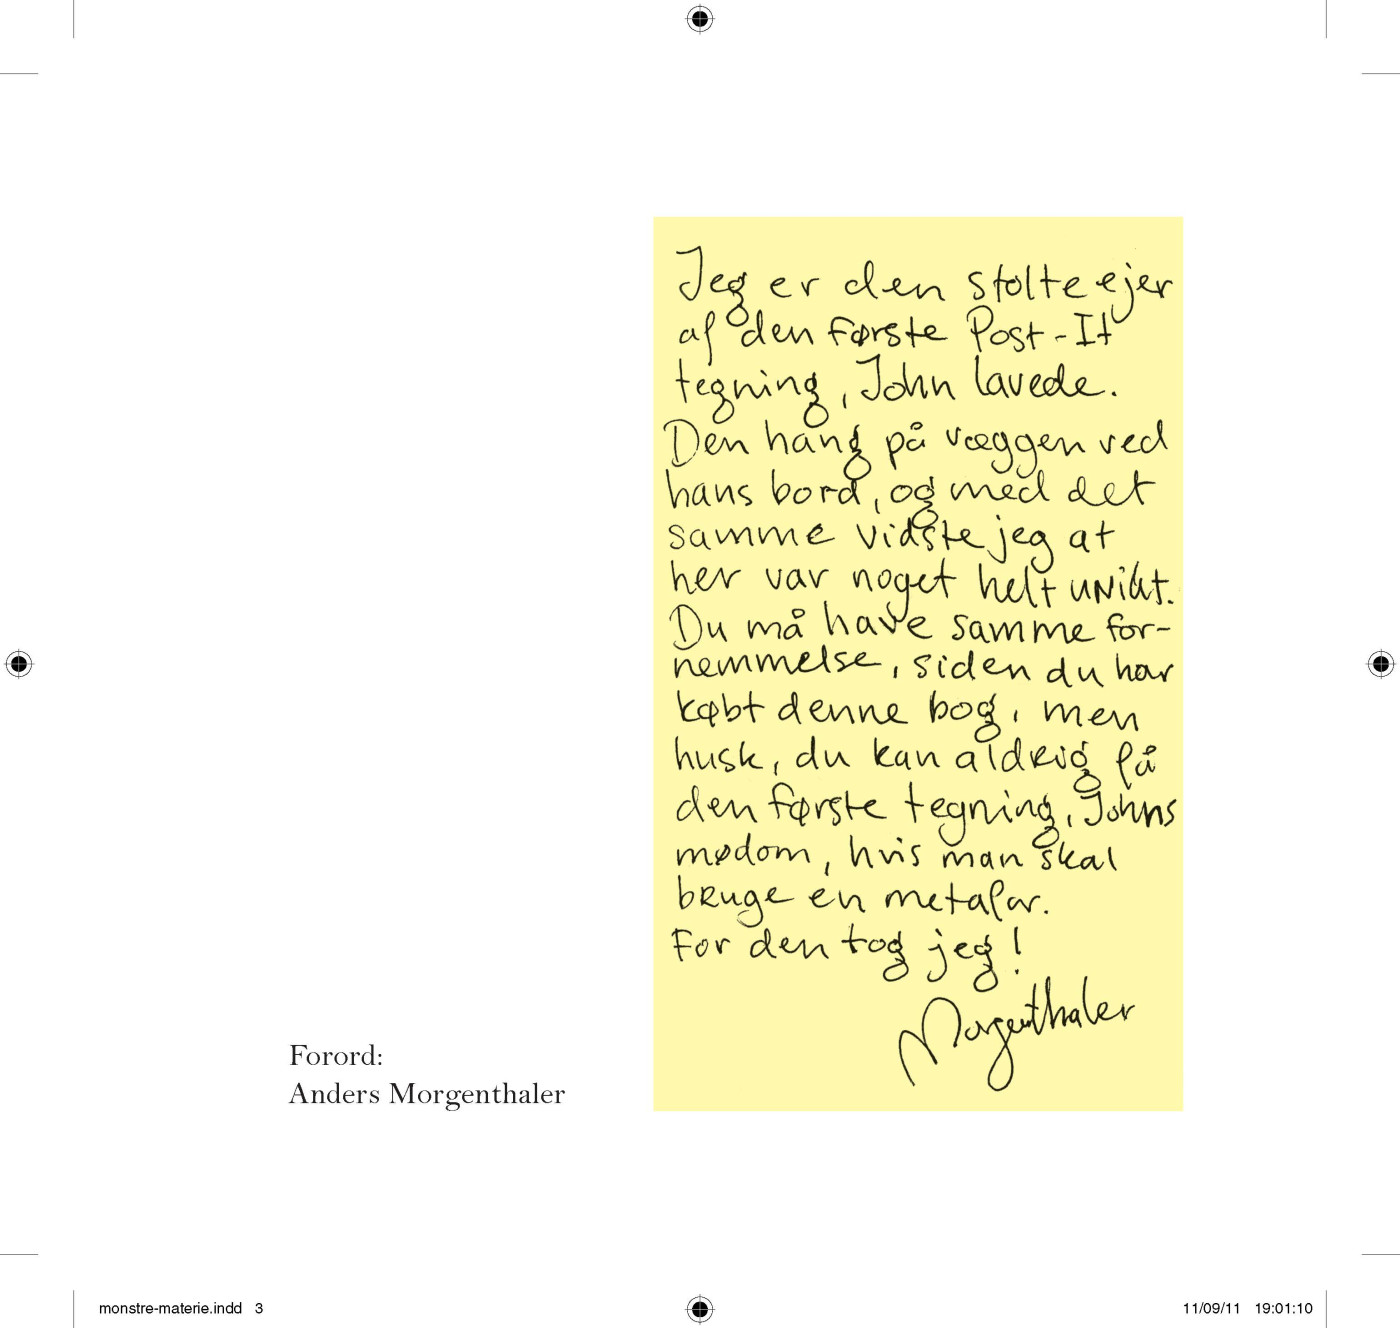 Jeg er den stolte ejer
af den første Post-It
tegning, John lavede.
Den hang på væggen ved
hans bord, og med det
samme vidste jeg at
her var noget helt unikt.
Du må have samme for-
nemmelse, siden du har
købt denne bog, men
husk, du kan aldrig få
den første tegning, Johns
mødom, hvis man skal
bruge en metafor.
For den tog jeg!
Morgenthaler
Forord:
Anders Morgenthaler
monstre-materie.indd 3
11/09/11 19:01:10